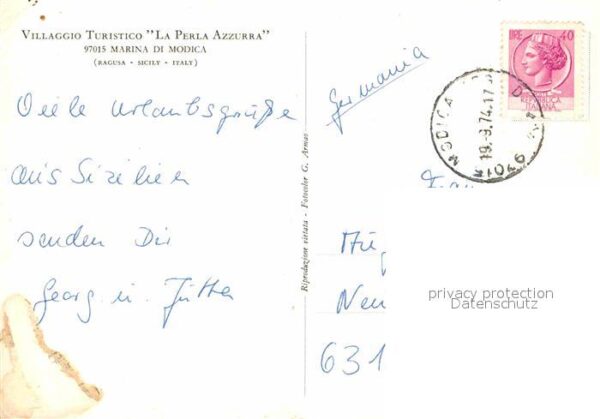 VILLAGGIO TURISTICO "LA PERLA AZZURRA"
97015 MARINA DI MODICA
(RAGUSA • SICILY • ITALY)
Viele Urlaubsgrüße
aus Sizilien
senden Dir
Georg u. Jutta
Riproduzione vietata - Fotocolor G. Armao
Germania
LIRE 40
REPUBBLICA
ITALIANA
MODICA
19.-9.74.17
631
privacy protection
Datenschutz